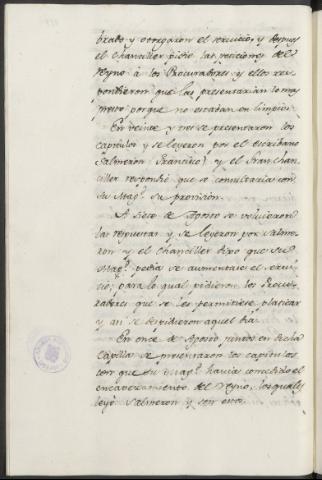 brado y otorgaron el servicio, y despues
el Chanciller pidio las peticiones del
Reyno á los Procuradores y ellos res
pondieron que las presentarian lo mas
presto porque no estaban en limpio.
En veinte y tres se presentaron los
capitulos y se leyeron por el escribano
Salmeron (Francisco) y el Gran Chan
ciller respondió que se consultaria con
su Magd. su provision.
A siete de Agosto se volvieron
las respuestas y se leyeron por Salme
ron y el Chanciller dixo que su
Magd. pedia se aumentase el servi
cio, para lo qual pidieron los Procu
radores que se les permitiese platicar
y an se despidieron aquel dia.
En once de Agosto juntos en dicha
Capilla se presentaron los capitulos
con que su Magd. havia concedido el
encavezamiento del Reyno, los quales
leyó Salmeron y son estos